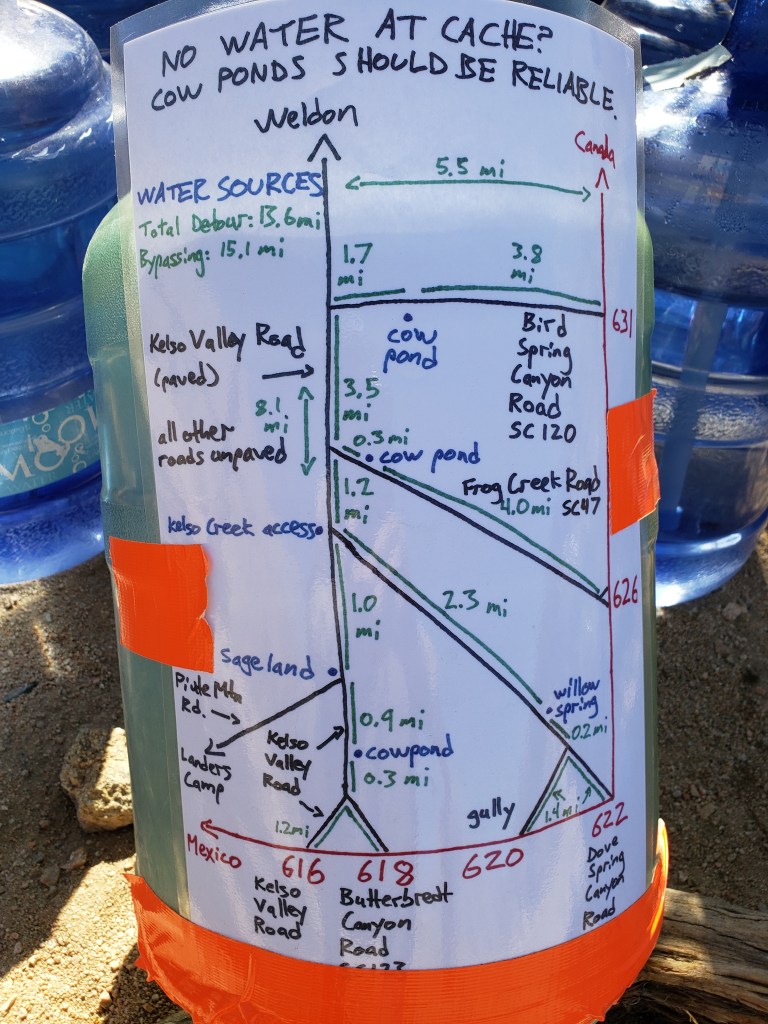 NO WATER AT CACHE?
COW PONDS SHOULD BE RELIABLE.
Weldon
Canada
5.5 mi
WATER SOURCES
Total Detour: 13.6mi
Bypassing: 15.1 mi
1.7
mi
3.8
mi
631
cow
pond
Bird
Spring
Canyon
Road
SC120
Kelso Valley Road
(paved)
8.1
mi
3.5
mi
all other
roads unpaved
0.3mi
cow pond
1.2
mi
Frog Creek Road
4.0mi SC47
Kelso Creek access
626
1.0
mi
2.3 mi
Sageland
Piute Mtn
Rd.
willow
spring
0.2mi
Landers
Camp
Kelso
Valley
Road
0.9 mi
cowpond
0.3 mi
gully
1.4mi
1.2mi
Mexico
616
618
620
622
Kelso
Valley
Road
Butterbredt
Canyon
Road
Dove
Spring
Canyon
Road